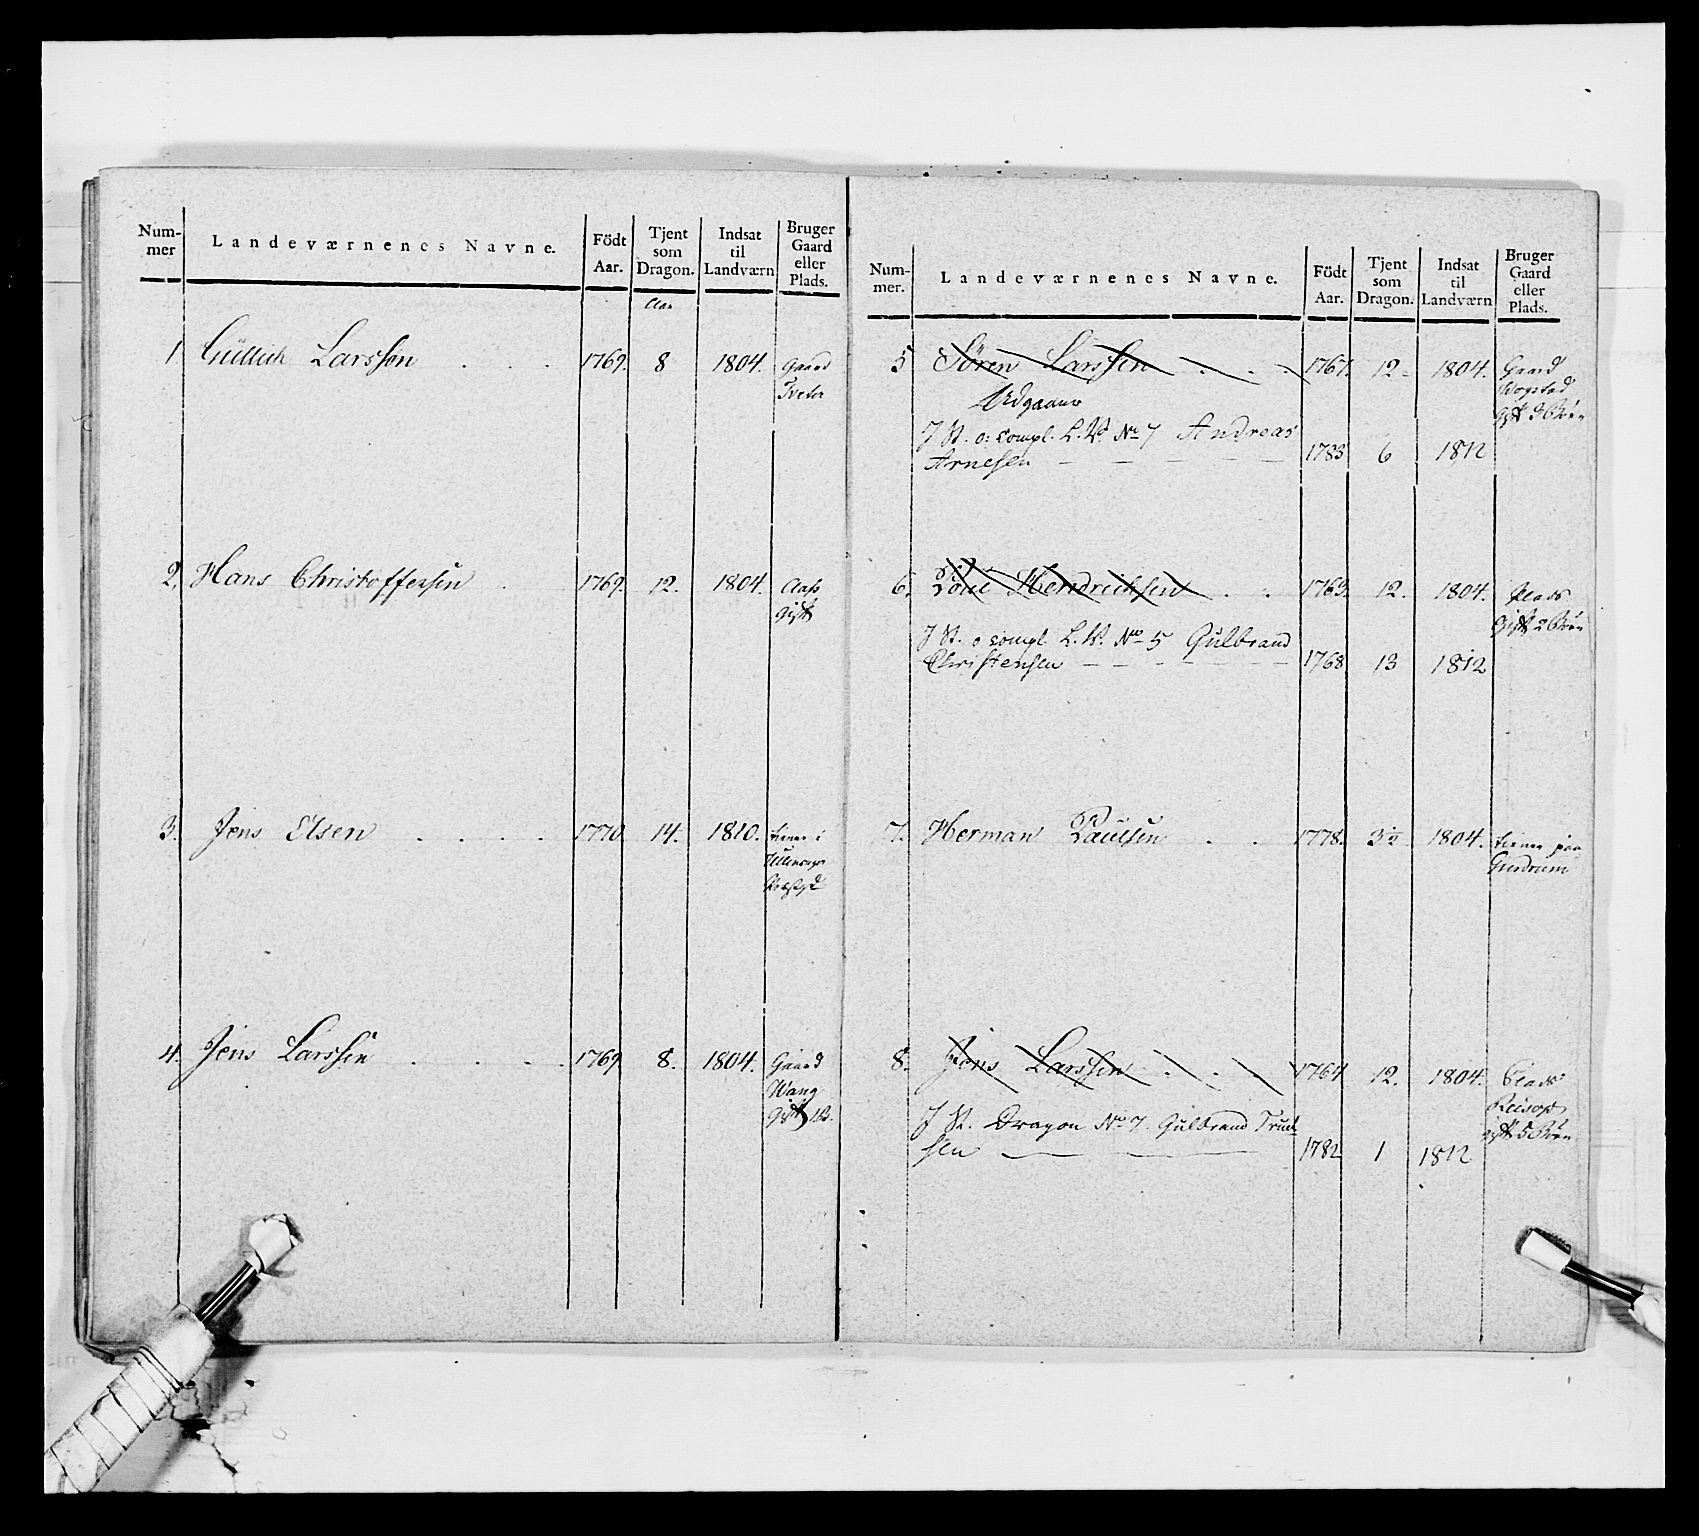 Num-
mer
Landeværnenes Navne.
Födt
Aar.
Tjent
som
Dragon.
Indsat
til
Landværn
Bruger
Gaard
eller
Plads.
Aar
1. Güllich Larssøn . . . 1769. 8 1804. Gaard
Tveter
2. Hans Christoffersen . 1769. 12. 1804. Aass
Gift
3. Jens Elsen . . . . 1770. 14. 1810. tiener i
4. Jens Larssen . . . . 1769 8. 1804. Gaard
Wang
Gift
Num-
mer.
Landeværnenes Navne.
Födt
Aar.
Tjent
som
Dragon.
Indsat
til
Landværn
Bruger
Gaard
eller
Plads.
5 Sören Larssen . . . 1767. 12. 1804. Gaard
Gift 3 Börn
Udgaaer
J St. o: compl. L. V. No 7 Andreas
Arnesen 1783 6 1812
6. Poul Hendrichsen . . 1763. 12. 1804. Plads
Gift 2 Börn
J St. o compl. L. V. No 5 Gülbrand
Christensen 1768 13 1812
7. Herman Paulsen . . 1778. 3½ 1804. tiener paa
8. Jens Larssen . . 1764 12. 1804. Plads
gift 5 Börn
J St. Dragon No 7. Gülbrand Truel-
sen 1782 1 1812